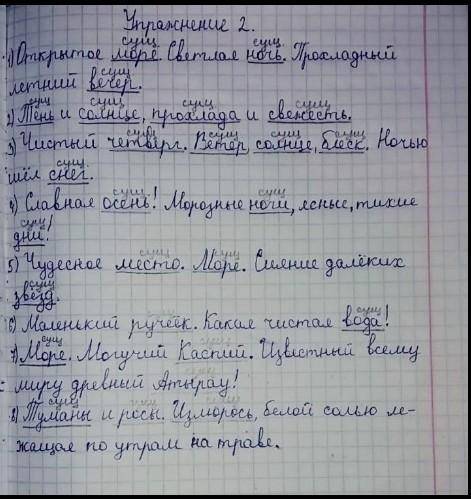 Упражнение 2.
сущ сущ
1) Открытое море. Светлая ночь. Прохладный
сущ
летний вечер.
сущ сущ сущ
2) Тень и солнце, прохлада и свежесть.
сущ сущ сущ сущ
3) Чистый четверг. Ветер, солнце, блеск. Ночью
сущ
шёл снег.
сущ сущ
4) Славная осень! Морозные ночи, ясные, тихие
сущ
дни!
сущ сущ
5) Чудесное место. Море. Сияние далёких
сущ
звёзд.
сущ
6) Маленький ручеёк. Какая чистая вода!
сущ
7) Море. Могучий Каспий. Известный всему
миру древний Атырау!
сущ
8) Туманы и росы. Изморось, белой солью ле-
жащая по утрам на траве.